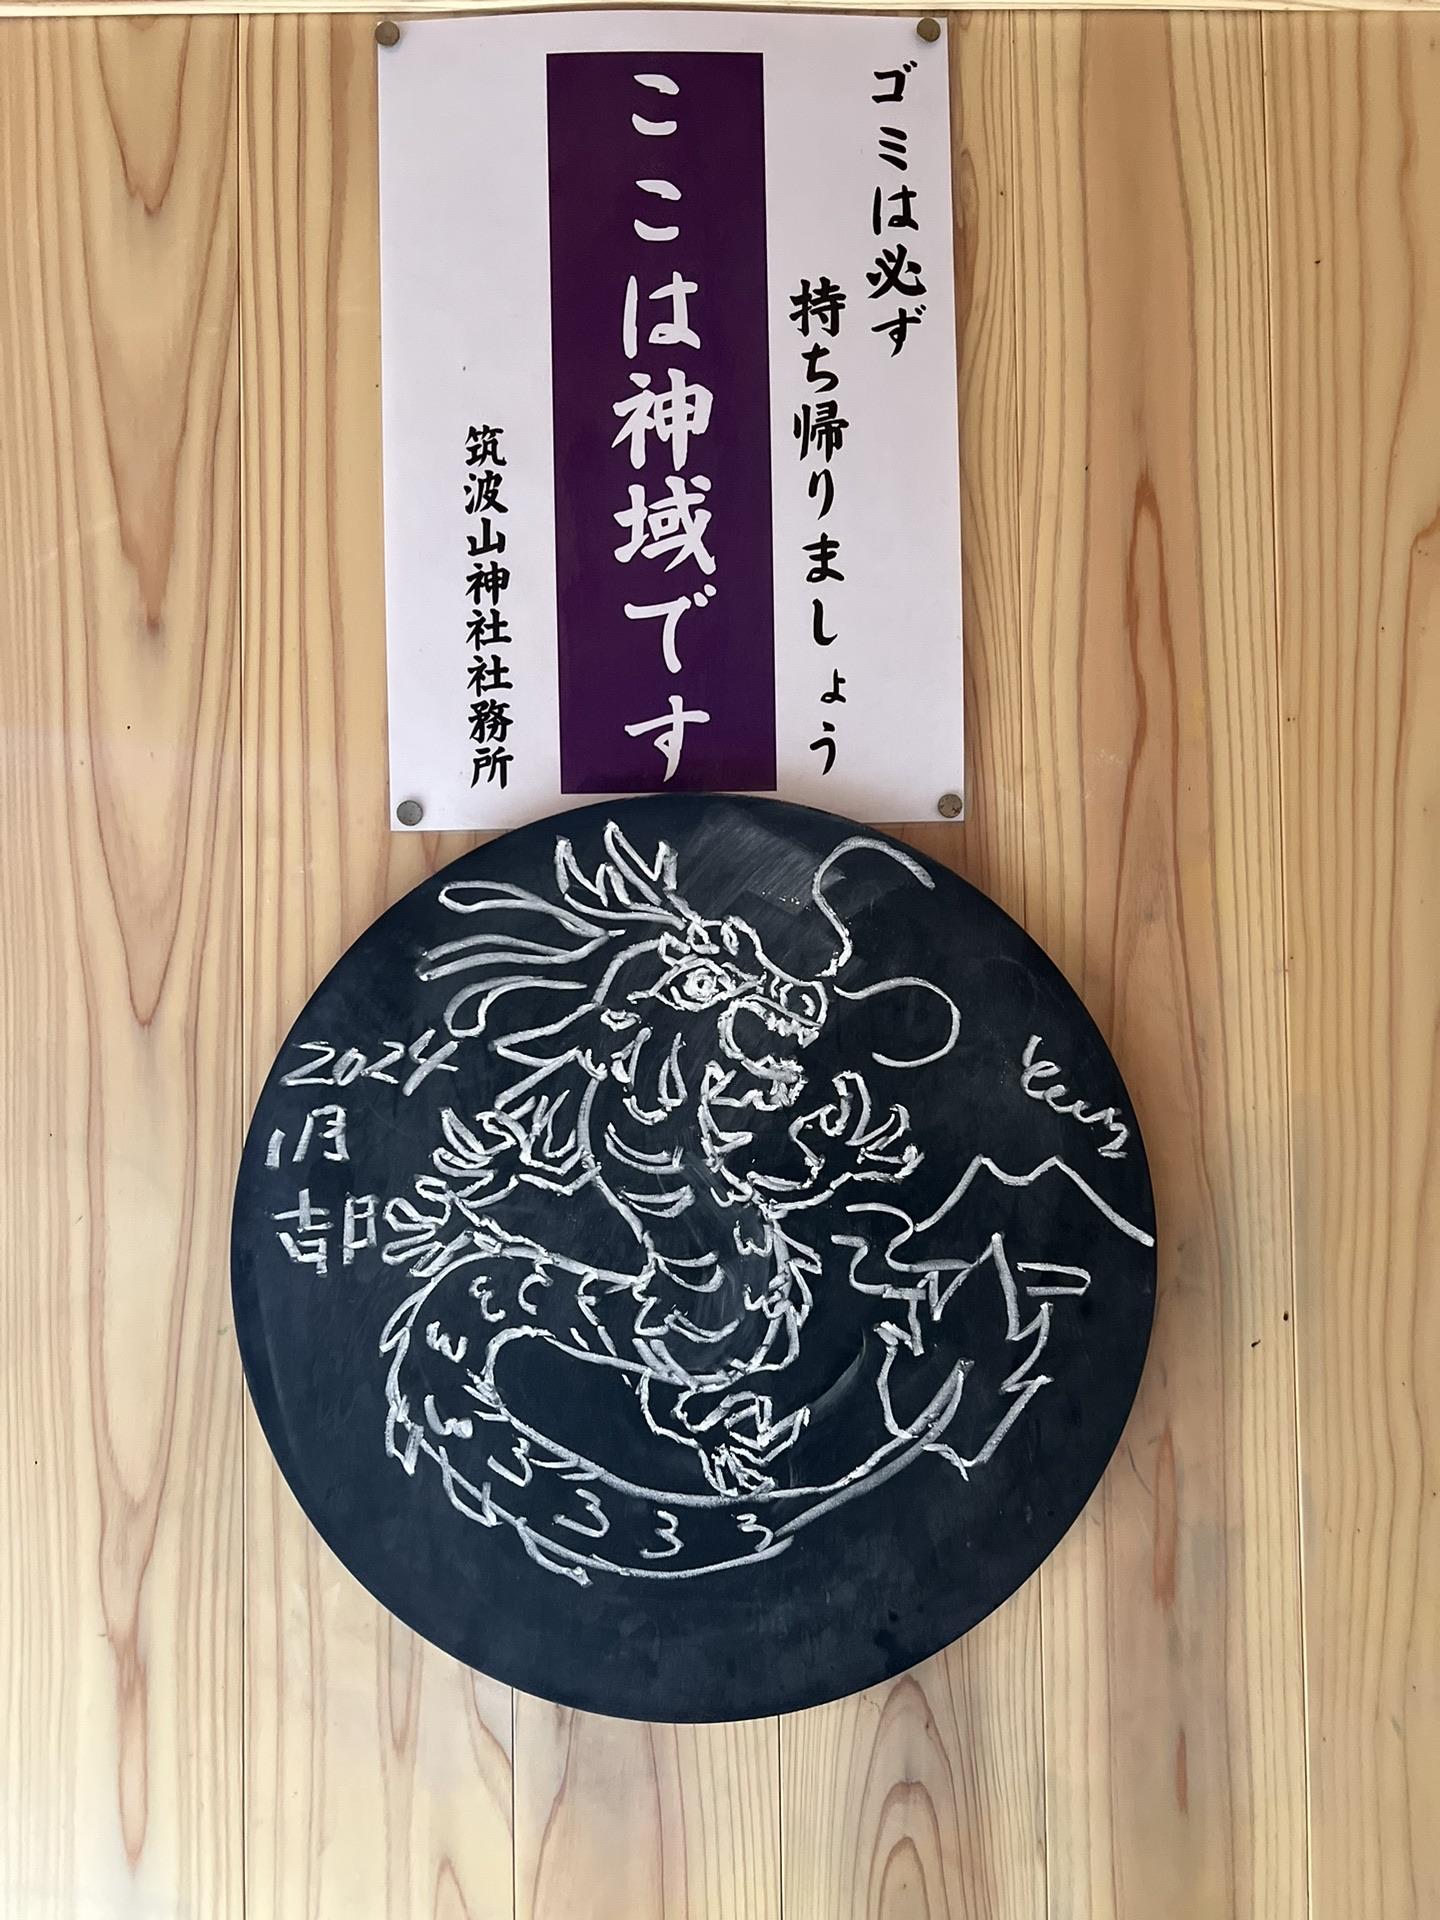 ゴミは必ず
持ち帰りましょう
ここは神域です
筑波山神社社務所
2024
1月
吉日